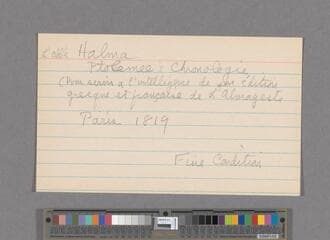 L'abbé Halma
Ptolemee: Chronologie
(Pour servir a l'intelligence de son édition
grecque et française de L'Almageste
Paris 1819
Fine Condition